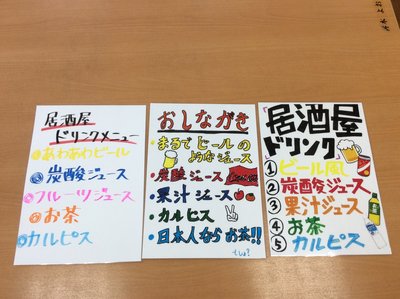 居酒屋
ドリンクメニュー
①あわあわビール
②炭酸ジュース
③フルーツジュース
④お茶
⑤カルピス
おしながき
・まるでビールの
ようなジュース
・炭酸ジュース
・果汁ジュース
・カルピス
・日本人ならお茶!!
でしょ!
居酒屋
ドリンク
①ビール風
②炭酸ジュース
③果汁ジュース
④お茶
⑤カルピス